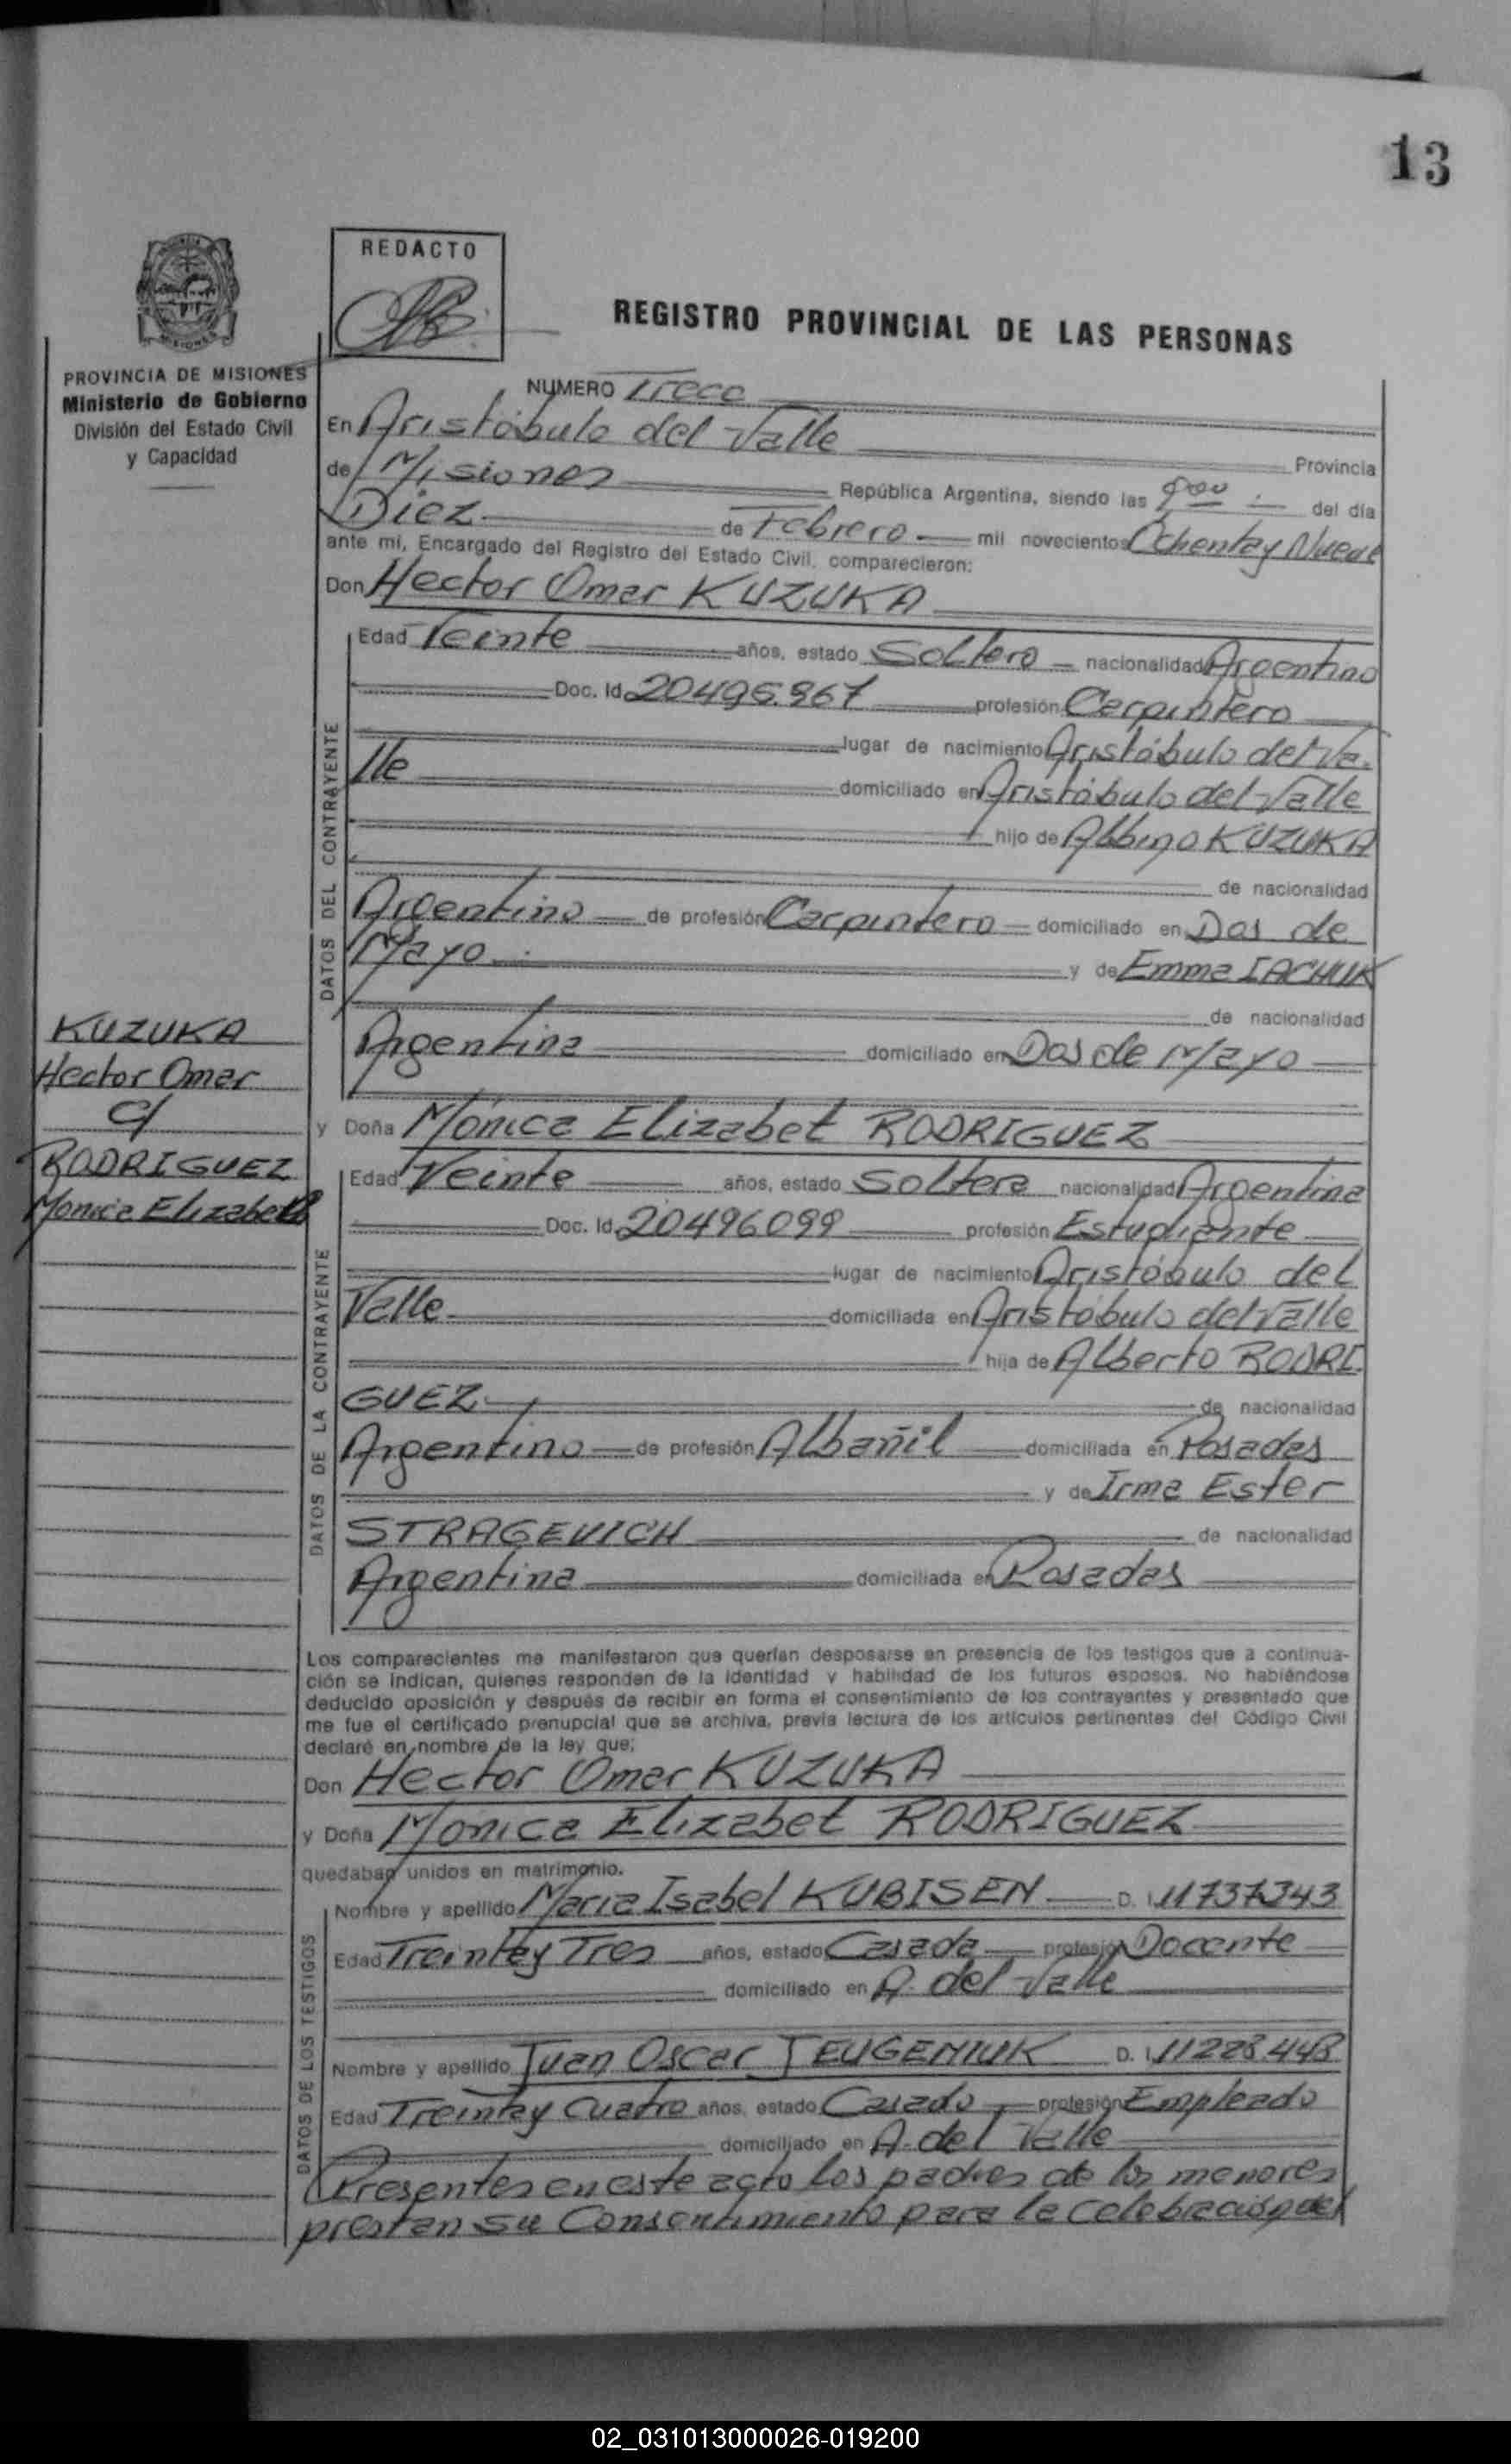 13
REDACTO
REGISTRO PROVINCIAL DE LAS PERSONAS
PROVINCIA DE MISIONES
Ministerio de Gobierno
División del Estado Civil
y Capacidad
NUMERO Trece
En Aristóbulo del Valle
Provincia
de Misiones República Argentina, siendo las del día
Diez de Febrero mil novecientos Ochenta y Nueve
ante mí, Encargado del Registro del Estado Civil, comparecieron:
Don Hector Omar KUZUKA
DATOS DEL CONTRAYENTE
Edad Veinte años, estado Soltero nacionalidad Argentino
Doc. Id. 20495.967 profesión Carpintero
lugar de nacimiento Aristóbulo del Va-
lle domiciliado en Aristóbulo del Valle
hijo de Albino KUZUKA
de nacionalidad
Argentino de profesión Carpintero domiciliado en Dos de
Mayo. y de Emma IACHUK
de nacionalidad
Argentina domiciliado en Dos de Mayo
KUZUKA
Hector Omar
c/
RODRIGUEZ
Monica Elizabeth
y Doña Mónica Elizabet RODRIGUEZ
DATOS DE LA CONTRAYENTE
Edad Veinte años, estado Soltera nacionalidad Argentina
Doc. Id. 20496099 profesión Estudiante
lugar de nacimiento Aristóbulo del
Valle domiciliada en Aristóbulo del Valle
hija de Alberto RODRI-
GUEZ de nacionalidad
Argentino de profesión Albañil domiciliada en Posadas
y de Irma Ester
STRAGEVICH de nacionalidad
Argentina domiciliada en Posadas
Los comparecientes me manifestaron que querían desposarse en presencia de los testigos que a continua-
ción se indican, quienes responden de la identidad y habilidad de los futuros esposos. No habiéndose
deducido oposición y después de recibir en forma el consentimiento de los contrayentes y presentado que
me fue el certificado prenupcial que se archiva, previa lectura de los artículos pertinentes del Código Civil
declaré en nombre de la ley que:
Don Hector Omar KUZUKA
y Doña Mónica Elizabet RODRIGUEZ
quedaban unidos en matrimonio.
DATOS DE LOS TESTIGOS
Nombre y apellido Maria Isabel KUBISEN D. I. 11737343
Edad Treinta y Tres años, estado Casada profesión Docente
domiciliado en A. del Valle
Nombre y apellido Juan Oscar JEUGENIUK D. I. 11228.448
Edad Treinta y Cuatro años, estado Casado profesión Empleado
domiciliado en A. del Valle
Presentes en este acto los padres de los menores
prestan su Consentimiento para la celebración del
02_031013000026-019200